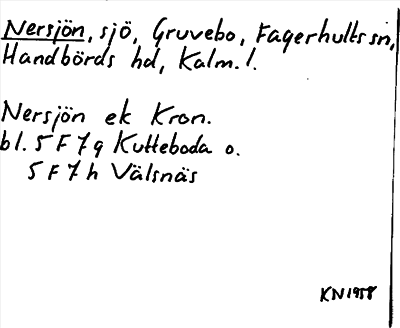 Nersjön, sjö, Gruvebo, Fagerhults sn,
Handbörds hd, Kalm. l.
Nersjön ek Kron.
bl. 5 F 7 g Kutteboda o.
5 F 7 h Välsnäs
KN 1958